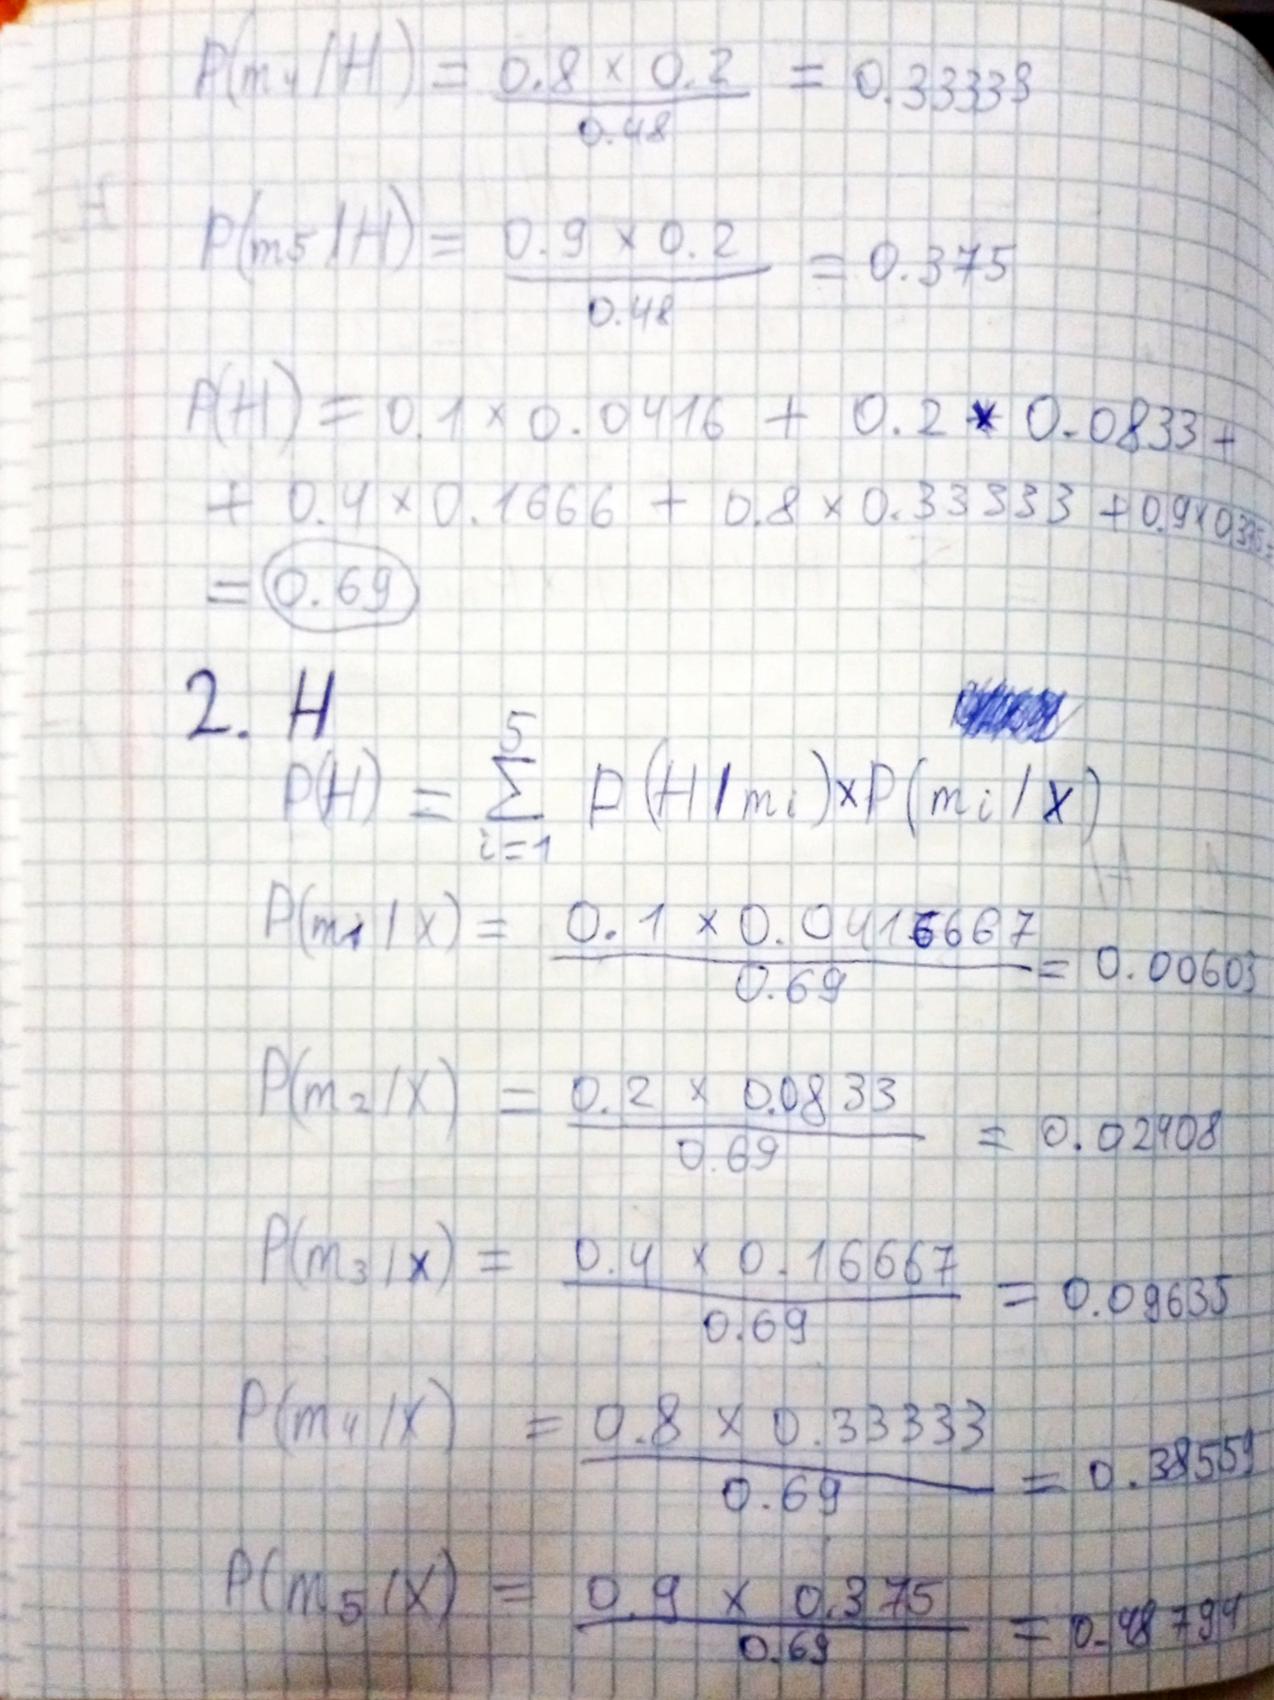 P(m4/H) = 0.8 × 0.2 / 0.48 = 0.33333
P(m5/H) = 0.9 × 0.2 / 0.48 = 0.375
P(H) = 0.1 × 0.0416 + 0.2 × 0.0833 +
+ 0.4 × 0.1666 + 0.8 × 0.33333 + 0.9 × 0.375 =
= 0.69
2. H
P(H) = ∑ i=1 5 P(H/mi) × P(mi/X)
P(m1/X) = 0.1 × 0.0416667 / 0.69 = 0.00603
P(m2/X) = 0.2 × 0.0833 / 0.69 = 0.02408
P(m3/X) = 0.4 × 0.16667 / 0.69 = 0.09635
P(m4/X) = 0.8 × 0.33333 / 0.69 = 0.38559
P(m5/X) = 0.9 × 0.375 / 0.69 = 0.48794